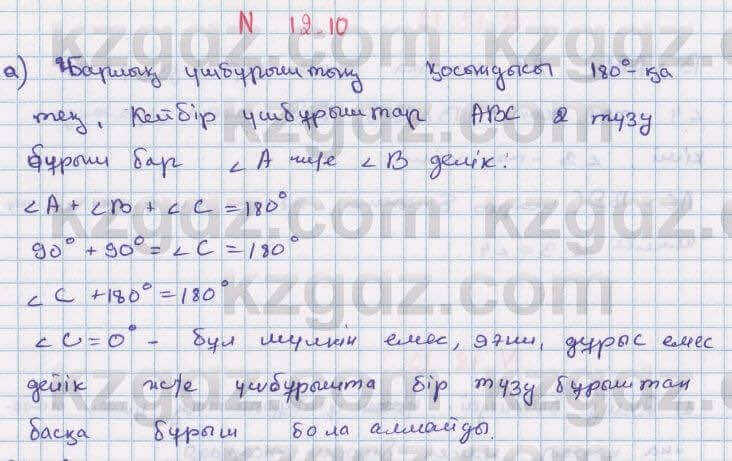 N 12.10
а) Барлық үшбұрыштың қосындысы 180°-қа
тең. Кейбір үшбұрыштар ABC 2 түзу
бұрыш бар ∠A ж/е ∠B делік:
∠A + ∠B + ∠C = 180°
90° + 90° = ∠C = 180°
∠C + 180° = 180°
∠C = 0° - бұл мүмкін емес, яғни, дұрыс емес
дейік ж/е үшбұрышта бір түзу бұрыштан
басқа бұрыш бола алмайды.
kzgdz.com